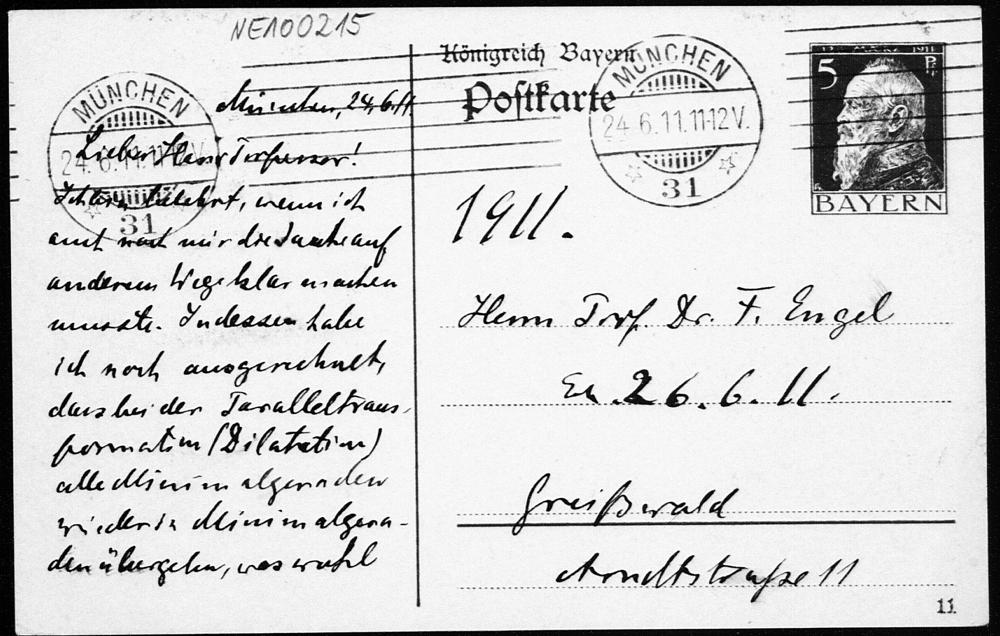 NE100215
München, 24.6.11.
Lieber Herr Professor!
Ich bin belehrt, wenn ich
auch noch mir die Sache auf
anderem Wege klar machen
musste. Indessen habe
ich noch ausgerechnet,
dass bei der Paralleltrans-
formation (Dilatation)
alle Minimalgeraden
wieder in Minimalgera-
den übergehn, was wohl
MÜNCHEN
24.6.11.11-12V.
31
Königreich Bayern
Postkarte
MÜNCHEN
24.6.11.11-12V.
31
12. MÄRZ 1911
5 Pf.
BAYERN
1911.
Herrn Prof. Dr. F. Engel
Eh. 26.6.11.
Greifswald
Arndtstraße 11
11